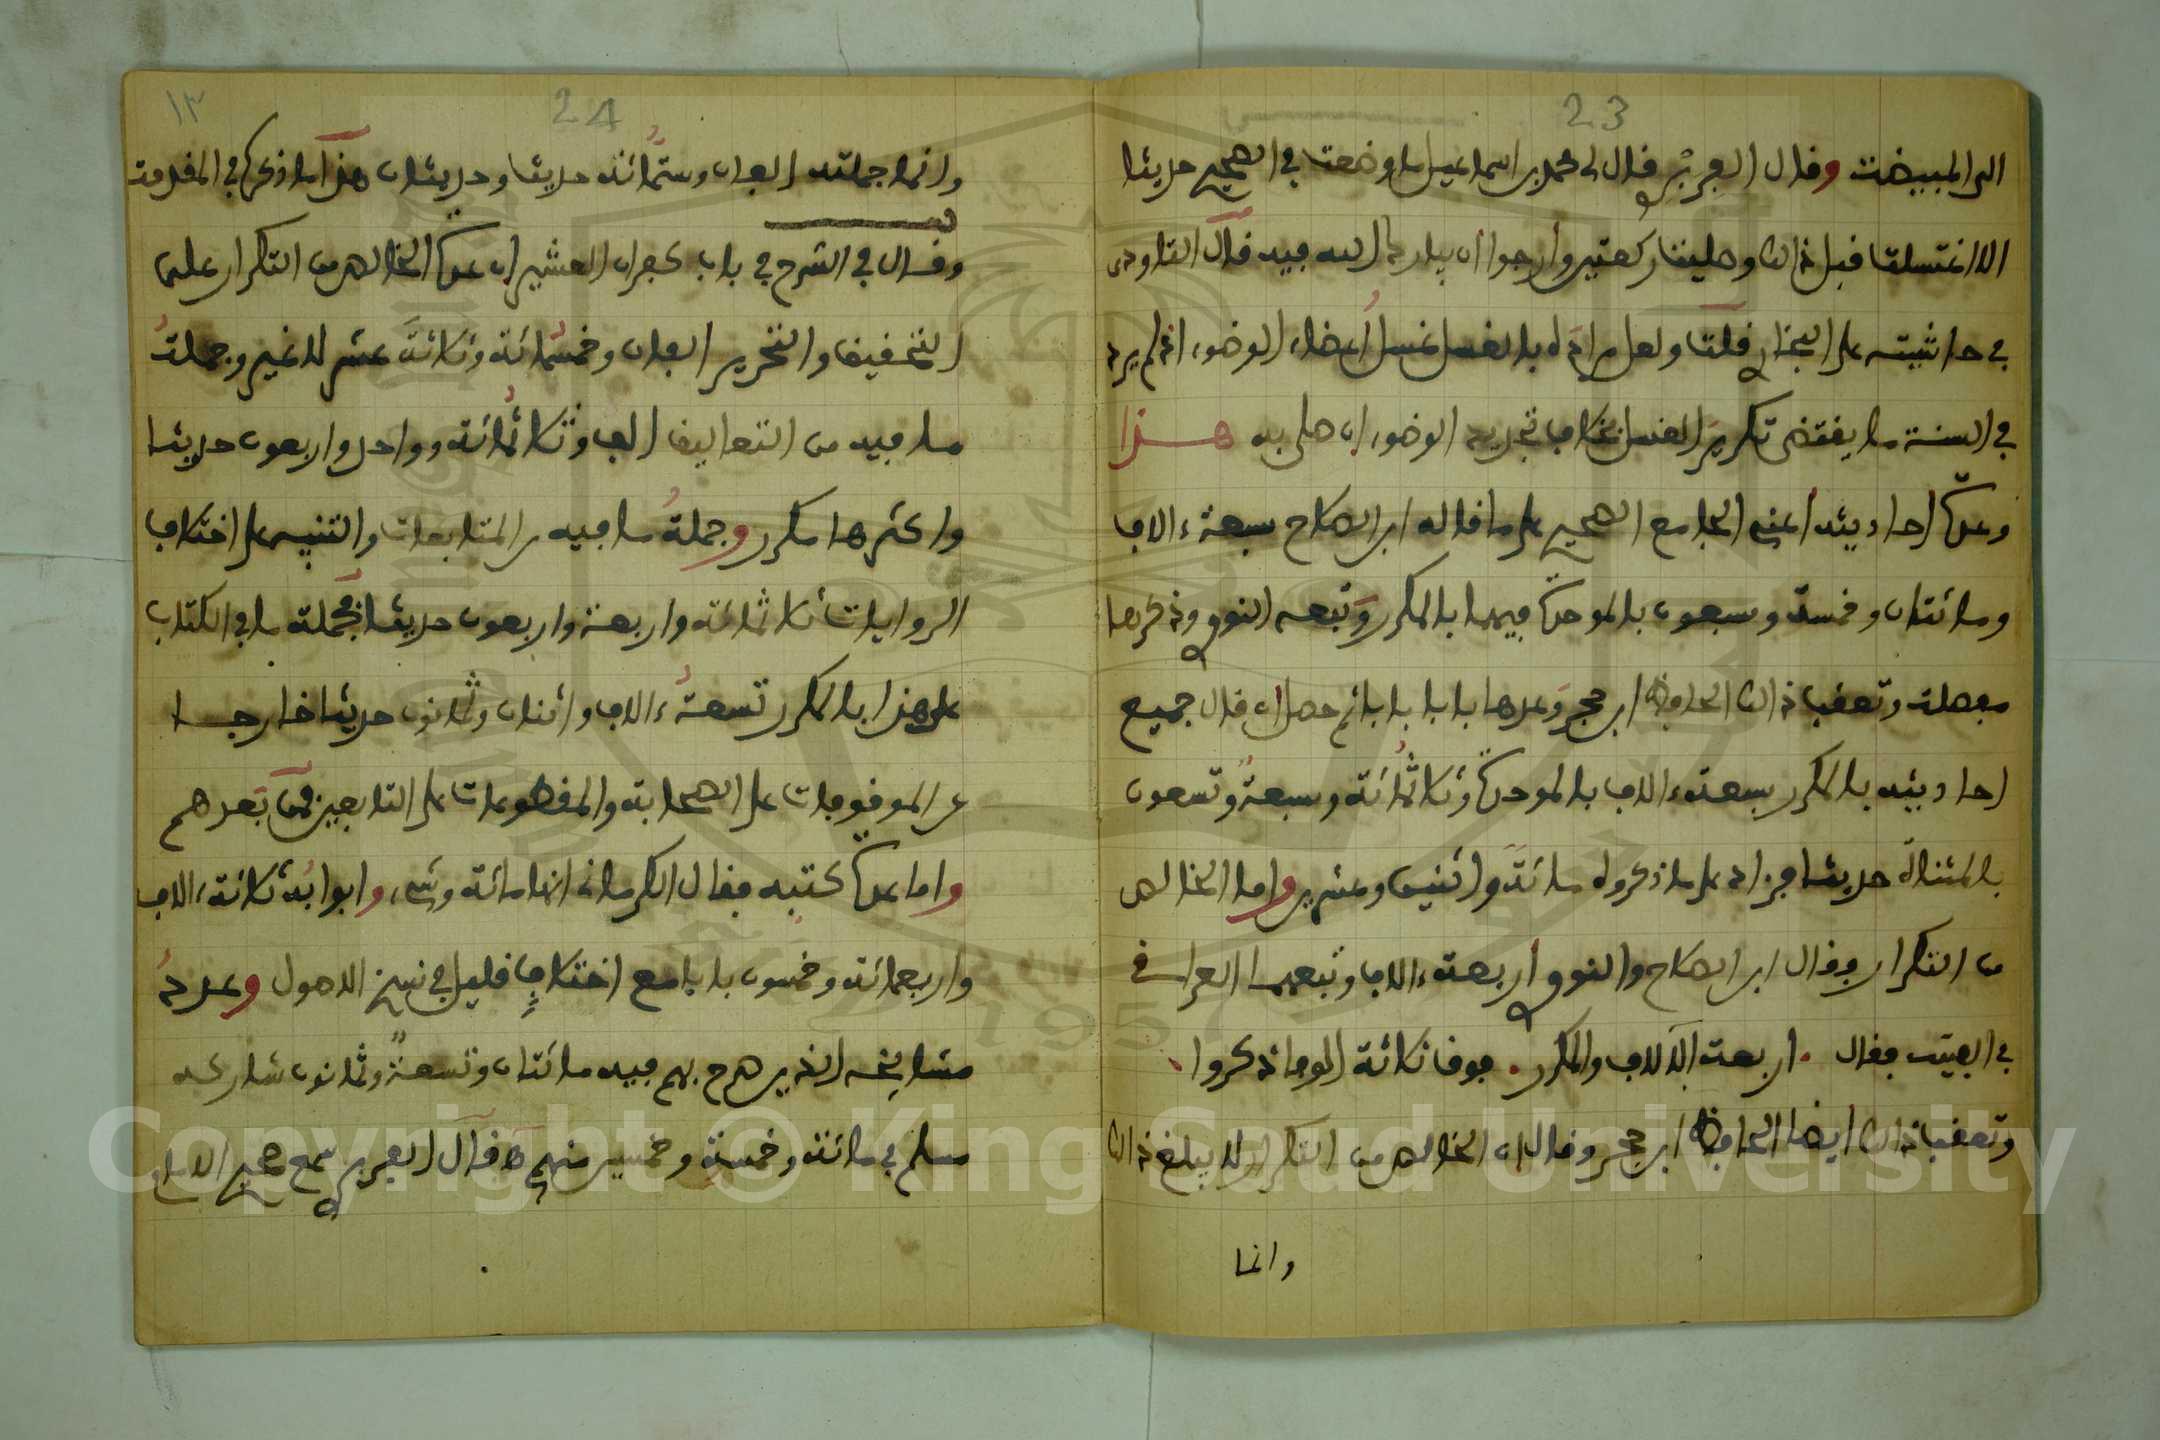 23
الى المبيضة وقال الفربري قال لي محمد بن اسماعيل ما وضعت في الصحيح حديثا
الا اغتسلت قبل ذلك وصليت ركعتين وأرجوا ان يبارك الله فيه قال التاودي
في حاشيته على البخاري قلت ولعل مراده بالغسل غسل أعضاء الوضوء اذ لم يرد
في السنة ما يقتضي تكرير الغسل بخلاف تجديد الوضوء ان صلى به هذا
وعدّة احاديثه أعني الجامع الصحيح على ما قاله ابن الصلاح سبعة ءالاف
ومائتان وخمسة وسبعون بالموحدة فيهما بالمكرر وتبعه النووي وذكرها
مفصلة وتعقب ذلك الحافظ ابن حجر وعدها بابا بابا ثم حصل ان قال جميع
احاديثه بالمكرر سبعة ءالاف بالموحدة وثلاثمائة وسبعة وتسعون
بالمثناة حديثا فزاد على ما ذكروه مائة واثنين وعشرين واما الخالص
من التكرار فقال ابن الصلاح والنووي أربعة ءالاف وتبعهما العراقي
في الفيته فقال . اربعة آلالاف والمكرر . فوق ثلاثة الوفا ذكروا
وتعقب ذلك ايضا الحافظ ابن حجر وقال ان الخالص من التكرار لا يبلغ ذلك
وانما
24
١٣
وانما جملته الفان وستمائة حديثا وحديثان هذا ما ذكره في المقدمة
وقال في الشرح في باب كفران العشير ان عدة الخالص من التكرار على
التخفيف والتحرير الفان وخمسمائة وثلاثة عشر لا غير وجملة
ما فيه من التعاليق الف وثلاثمائة وواحد واربعون حديثا
واكثرها مكرر وجملة ما فيه من المتابعات والتنبيه على اختلاف
الروايات ثلاثمائة واربعة واربعون حديثا فجملة ما في الكتاب
على هذا بالمكرر تسعة ءالاف واثنان وثمانون حديثا خارجا
عن الموقوفات على الصحابة والمقطوعات على التابعين فمن بعدهم
واما عدة كتبه فقال الكرماني انها مائة وشيء وابوابه ثلاثة ءالاف
واربعمائة وخمسون بابا مع اختلاف قليل في نسخ الاصول وعدد
مشايخه الذين صرح بهم فيه مائتان وتسعة وثمانون شاركه
مسلم في مائة وخمسة وخمسين منهم قال الفربري سمع صحيح الامام